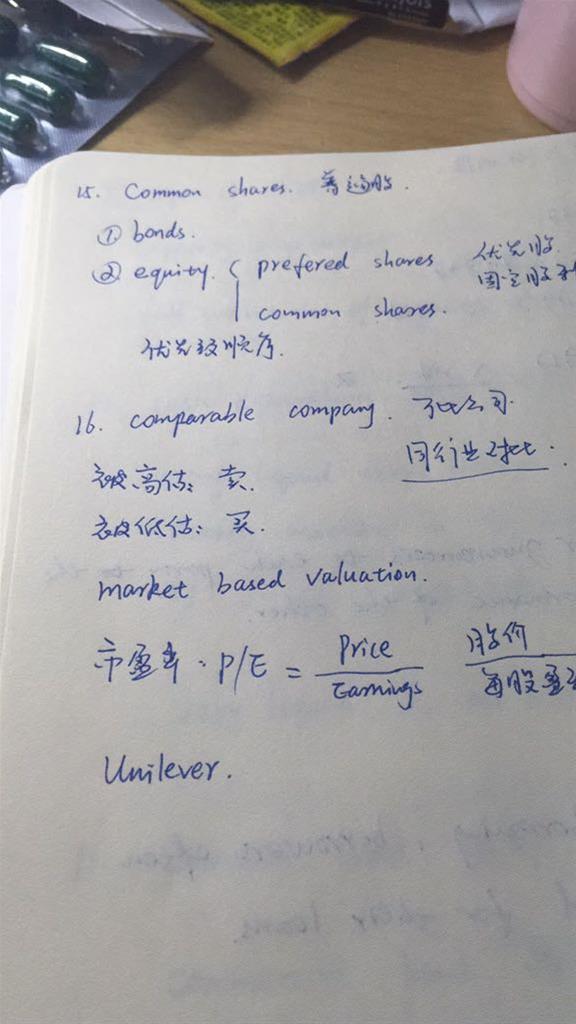 15. Common shares. 普通股.
① bonds.
② equity. { prefered shares 优先股.
固定股利
common shares.
优先级顺序.
16. comparable company. 可比公司.
同行业对比.
被高估: 卖.
被低估: 买.
market based valuation.
市盈率. P/E = Price / Earnings 股价 / 每股盈
Unilever.